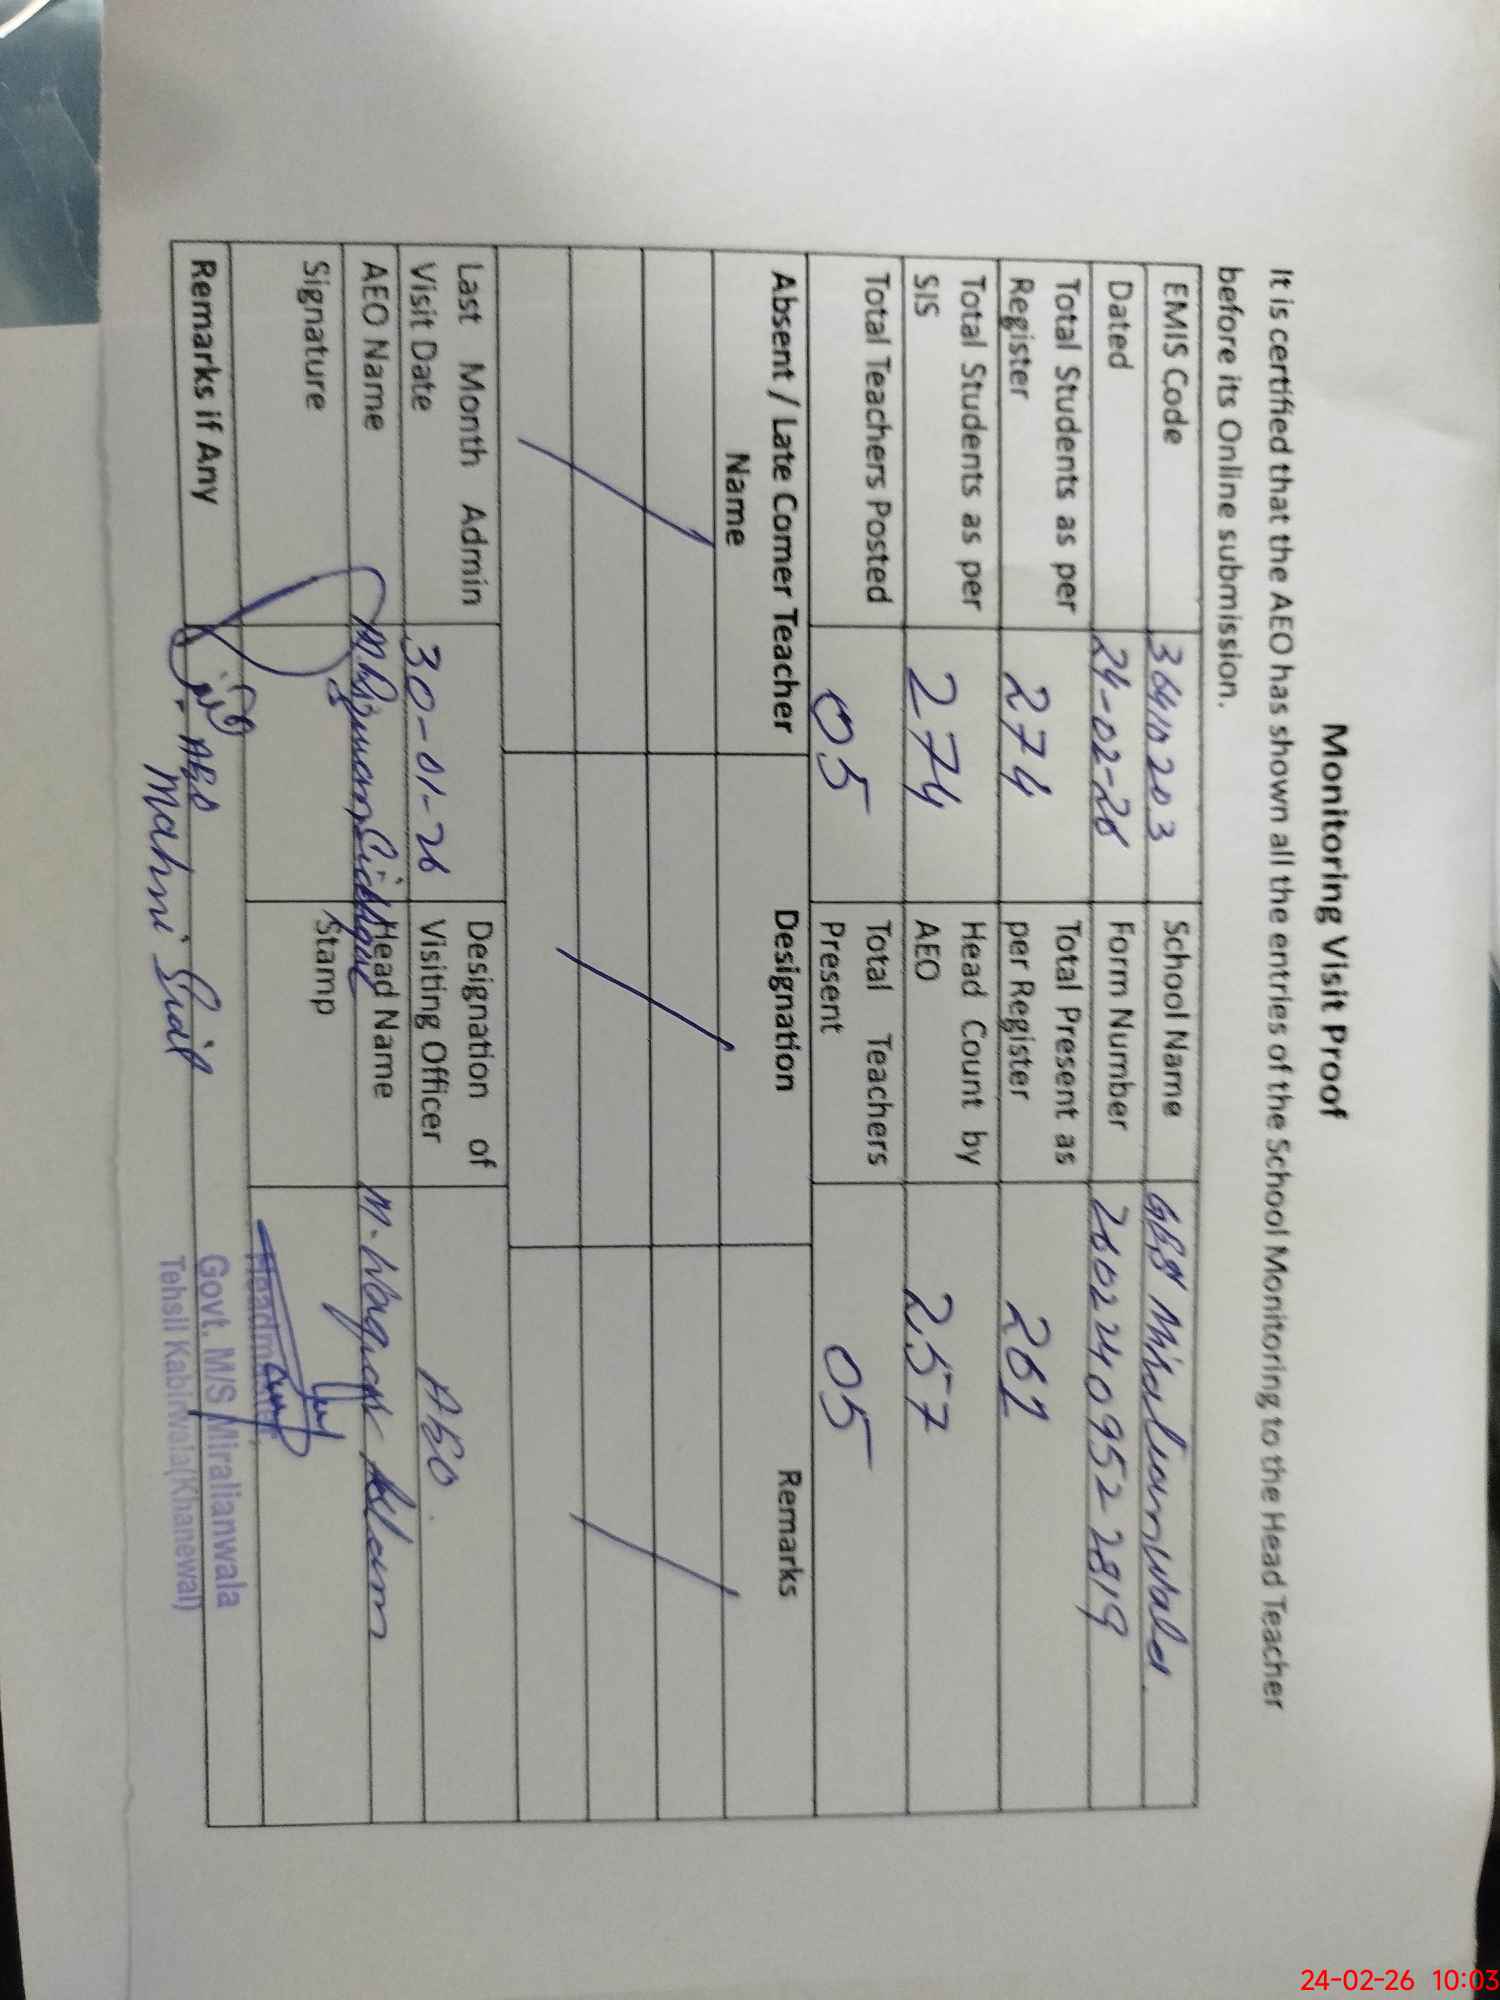 Monitoring Visit Proof
It is certified that the AEO has shown all the entries of the School Monitoring to the Head Teacher
before its Online submission.
EMIS Code 36410203 School Name Miralianwala
Dated 24-02-26 Form Number
Total Students as per Register 274 Total Present as per Register 261
Total Students as per SIS 274 Head Count by AEO 257
Total Teachers Posted 05 Total Teachers Present 05
Absent / Late Comer Teacher Name Designation Remarks
Last Month Admin Visit Date 30-01-26 Designation of Visiting Officer AEO
AEO Name M. Rizwan Siddique Head Name M. Waqar Aslam
Signature Stamp
Remarks if Any
AEO
Mahni Sial
Headmaster
Govt. M/S Miralianwala
Tehsil Kabirwala(Khanewal)
24-02-26 10:03